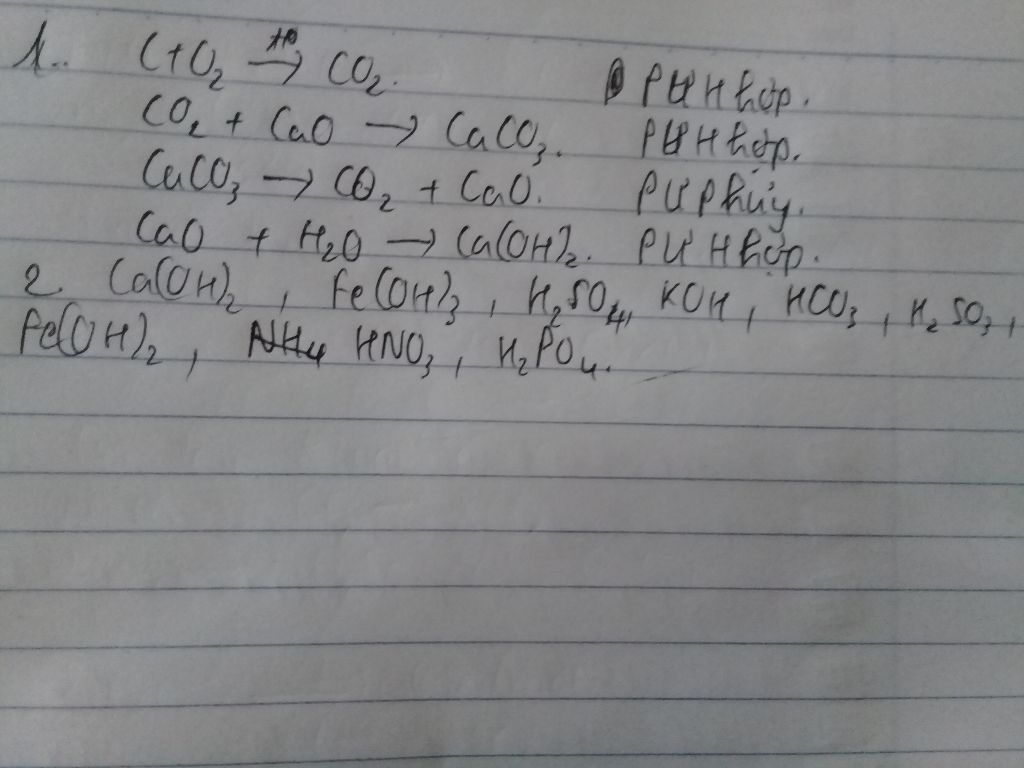 1.. C+O₂ →(t°) CO₂. PƯ H hợp.
CO₂ + CaO → CaCO₃. PƯ H hợp.
CaCO₃ → CO₂ + CaO. PƯ phủy.
CaO + H₂O → Ca(OH)₂. PƯ H hợp.
2. Ca(OH)₂, Fe(OH)₃, H₂SO₄, KOH, HCO₃, H₂SO₃,
Fe(OH)₂, HNO₃, H₂PO₄.